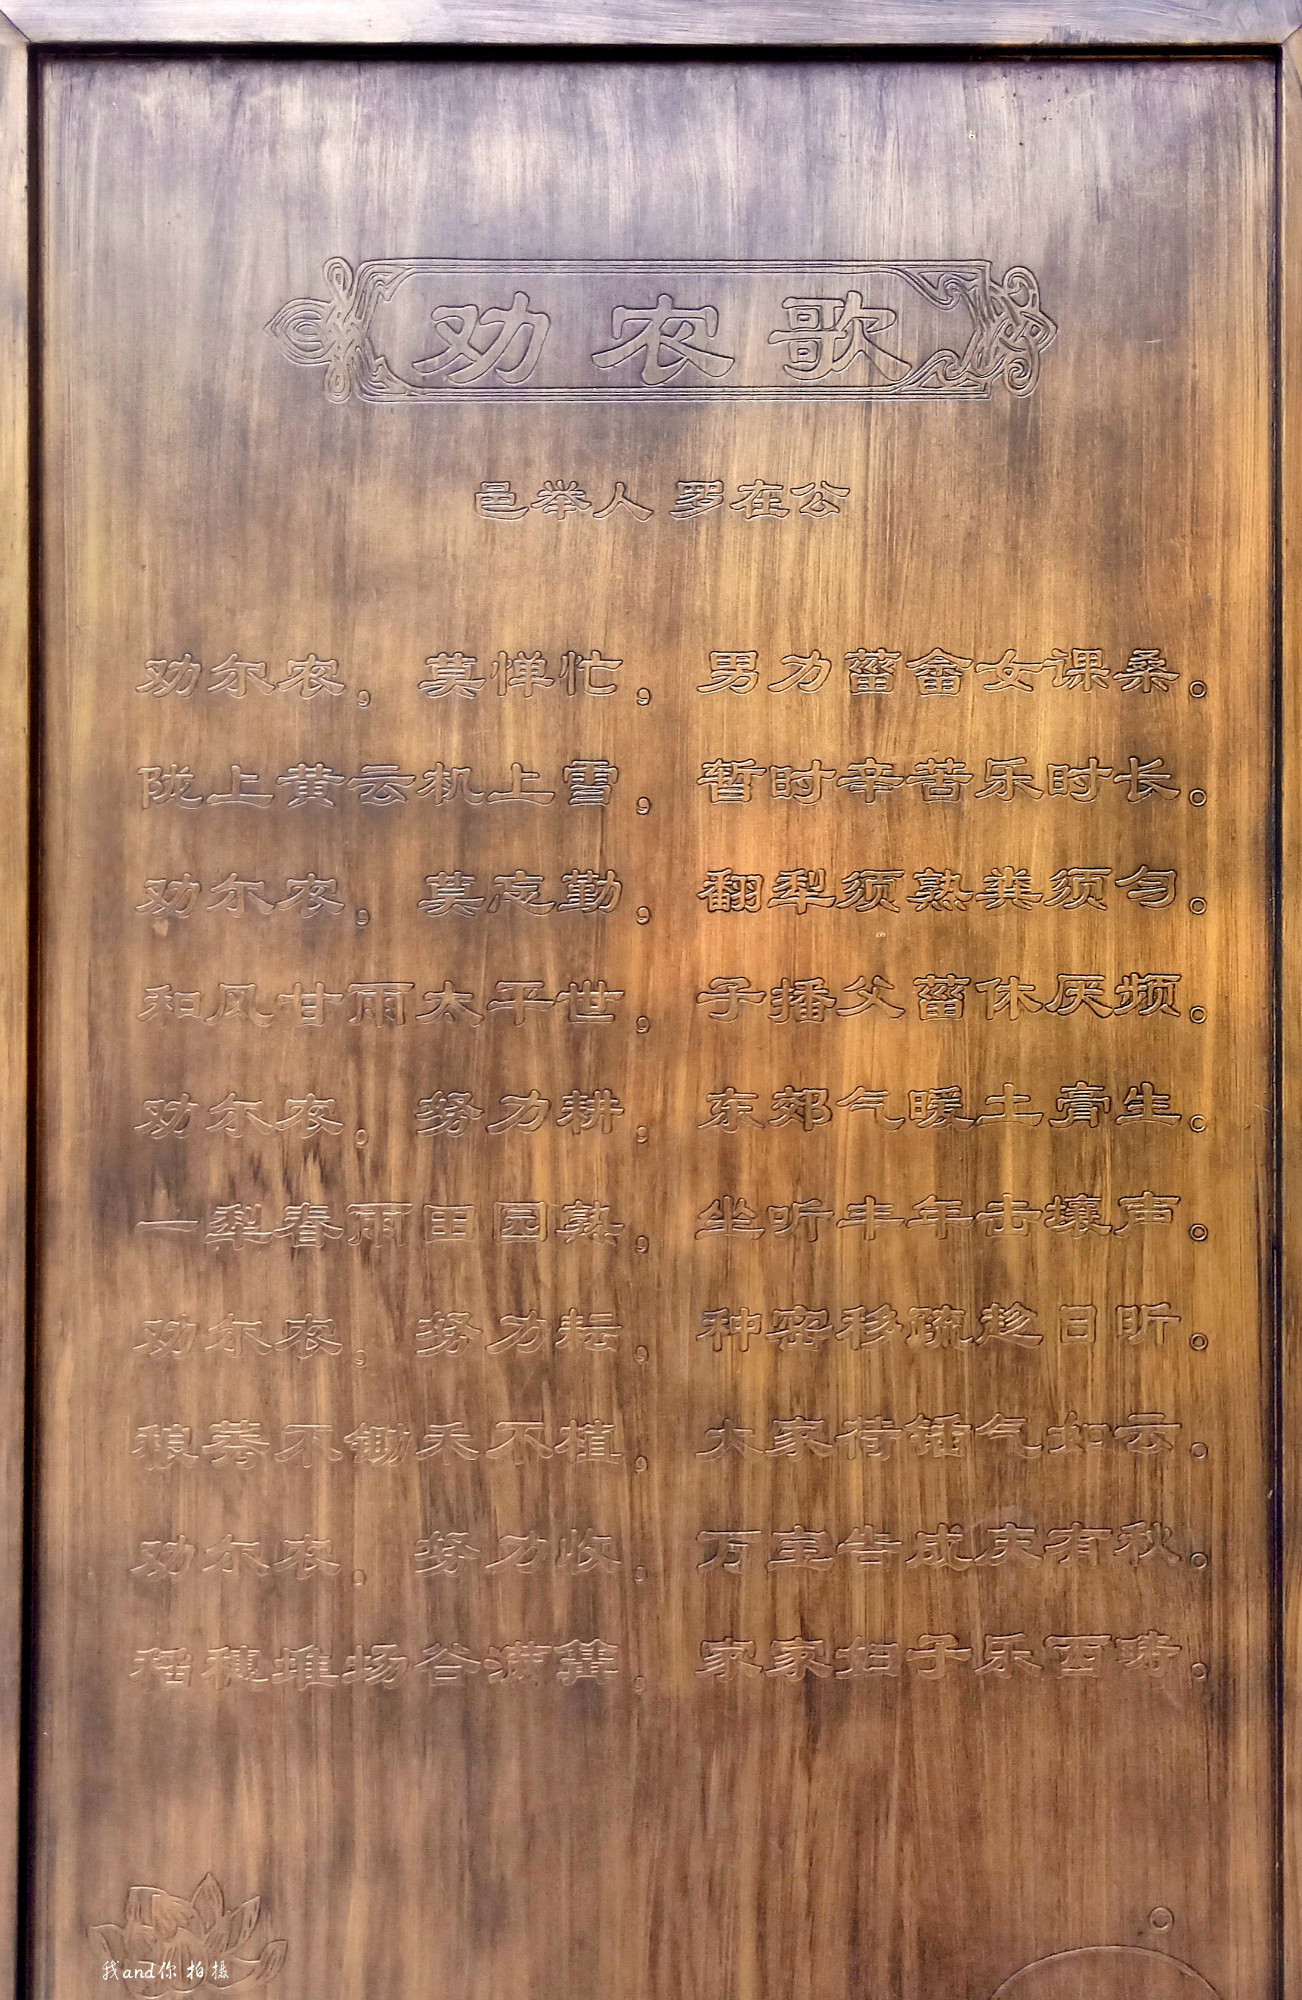 劝农歌
邑举人 罗在公
劝尔农，莫惮忙，男力菑畬女课桑。
陇上黄云机上雪，暂时辛苦乐时长。
劝尔农，莫忘勤，翻犁须熟粪须匀。
和风甘雨太平世，子播父菑休厌烦。
劝尔农。努力耕，东郊气暖土膏生。
一犁春雨田园熟，坐听丰年击壤声。
劝尔农。努力耘，种密移疏趁日昕。
稂莠不锄禾不植，大家荷锸气如云。
劝尔农。努力收，万宝告成庆有秋。
稻穗堆场谷满篝，家家妇子乐西畴。
我and你 拍摄